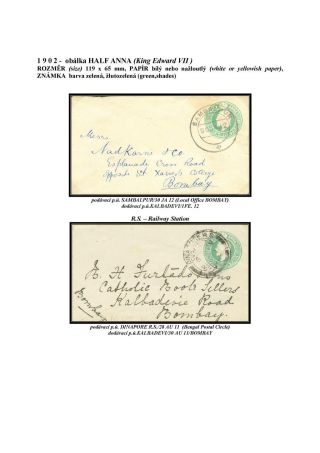 1 9 0 2 - obálka HALF ANNA (King Edward VII )
ROZMĚR (size) 119 x 65 mm, PAPÍR bílý nebo nažloutlý (white or yellowish paper),
ZNÁMKA barva zelená, žlutozelená (green,shades)
Messrs
Nadkarni & Co
Esplanade Cross Road
Opposite St. Xavier's College
Bombay
podávací p.ú. SAMBALPUR/30 JA 12 (Local Office BOMBAY)
dodávací p.ú.KALBADEVI/1FE. 12
R.S. – Railway Station
E. H. Furtado & Sons
Catholic Book Sellers
Kalbadevie Road
Bombay.
Bombay
podávací p.ú. DINAPORE R.S./28 AU 11 (Bengal Postal Circle)
dodávací p.ú.KALBADEVI/30 AU 11/BOMBAY